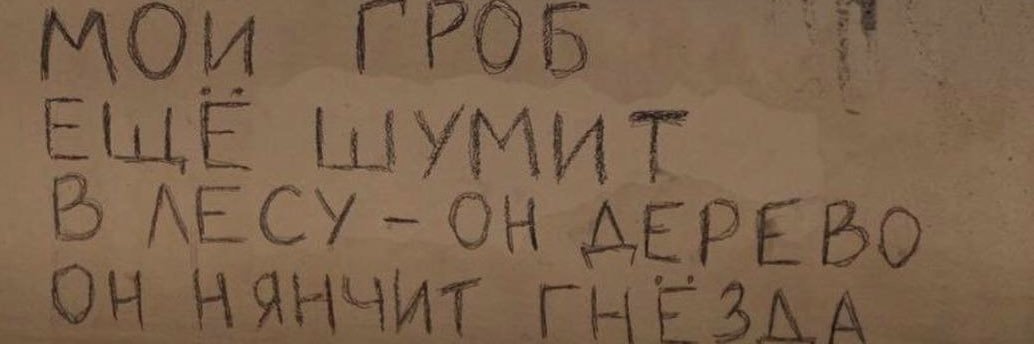 МОЙ ГРОБ
ЕЩЁ ШУМИТ
В ЛЕСУ - ОН ДЕРЕВО
ОН НЯНЧИТ ГНЁЗДА